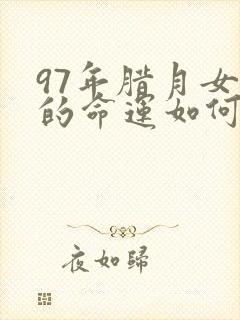 97年腊月女
的命运如何
夜如歸